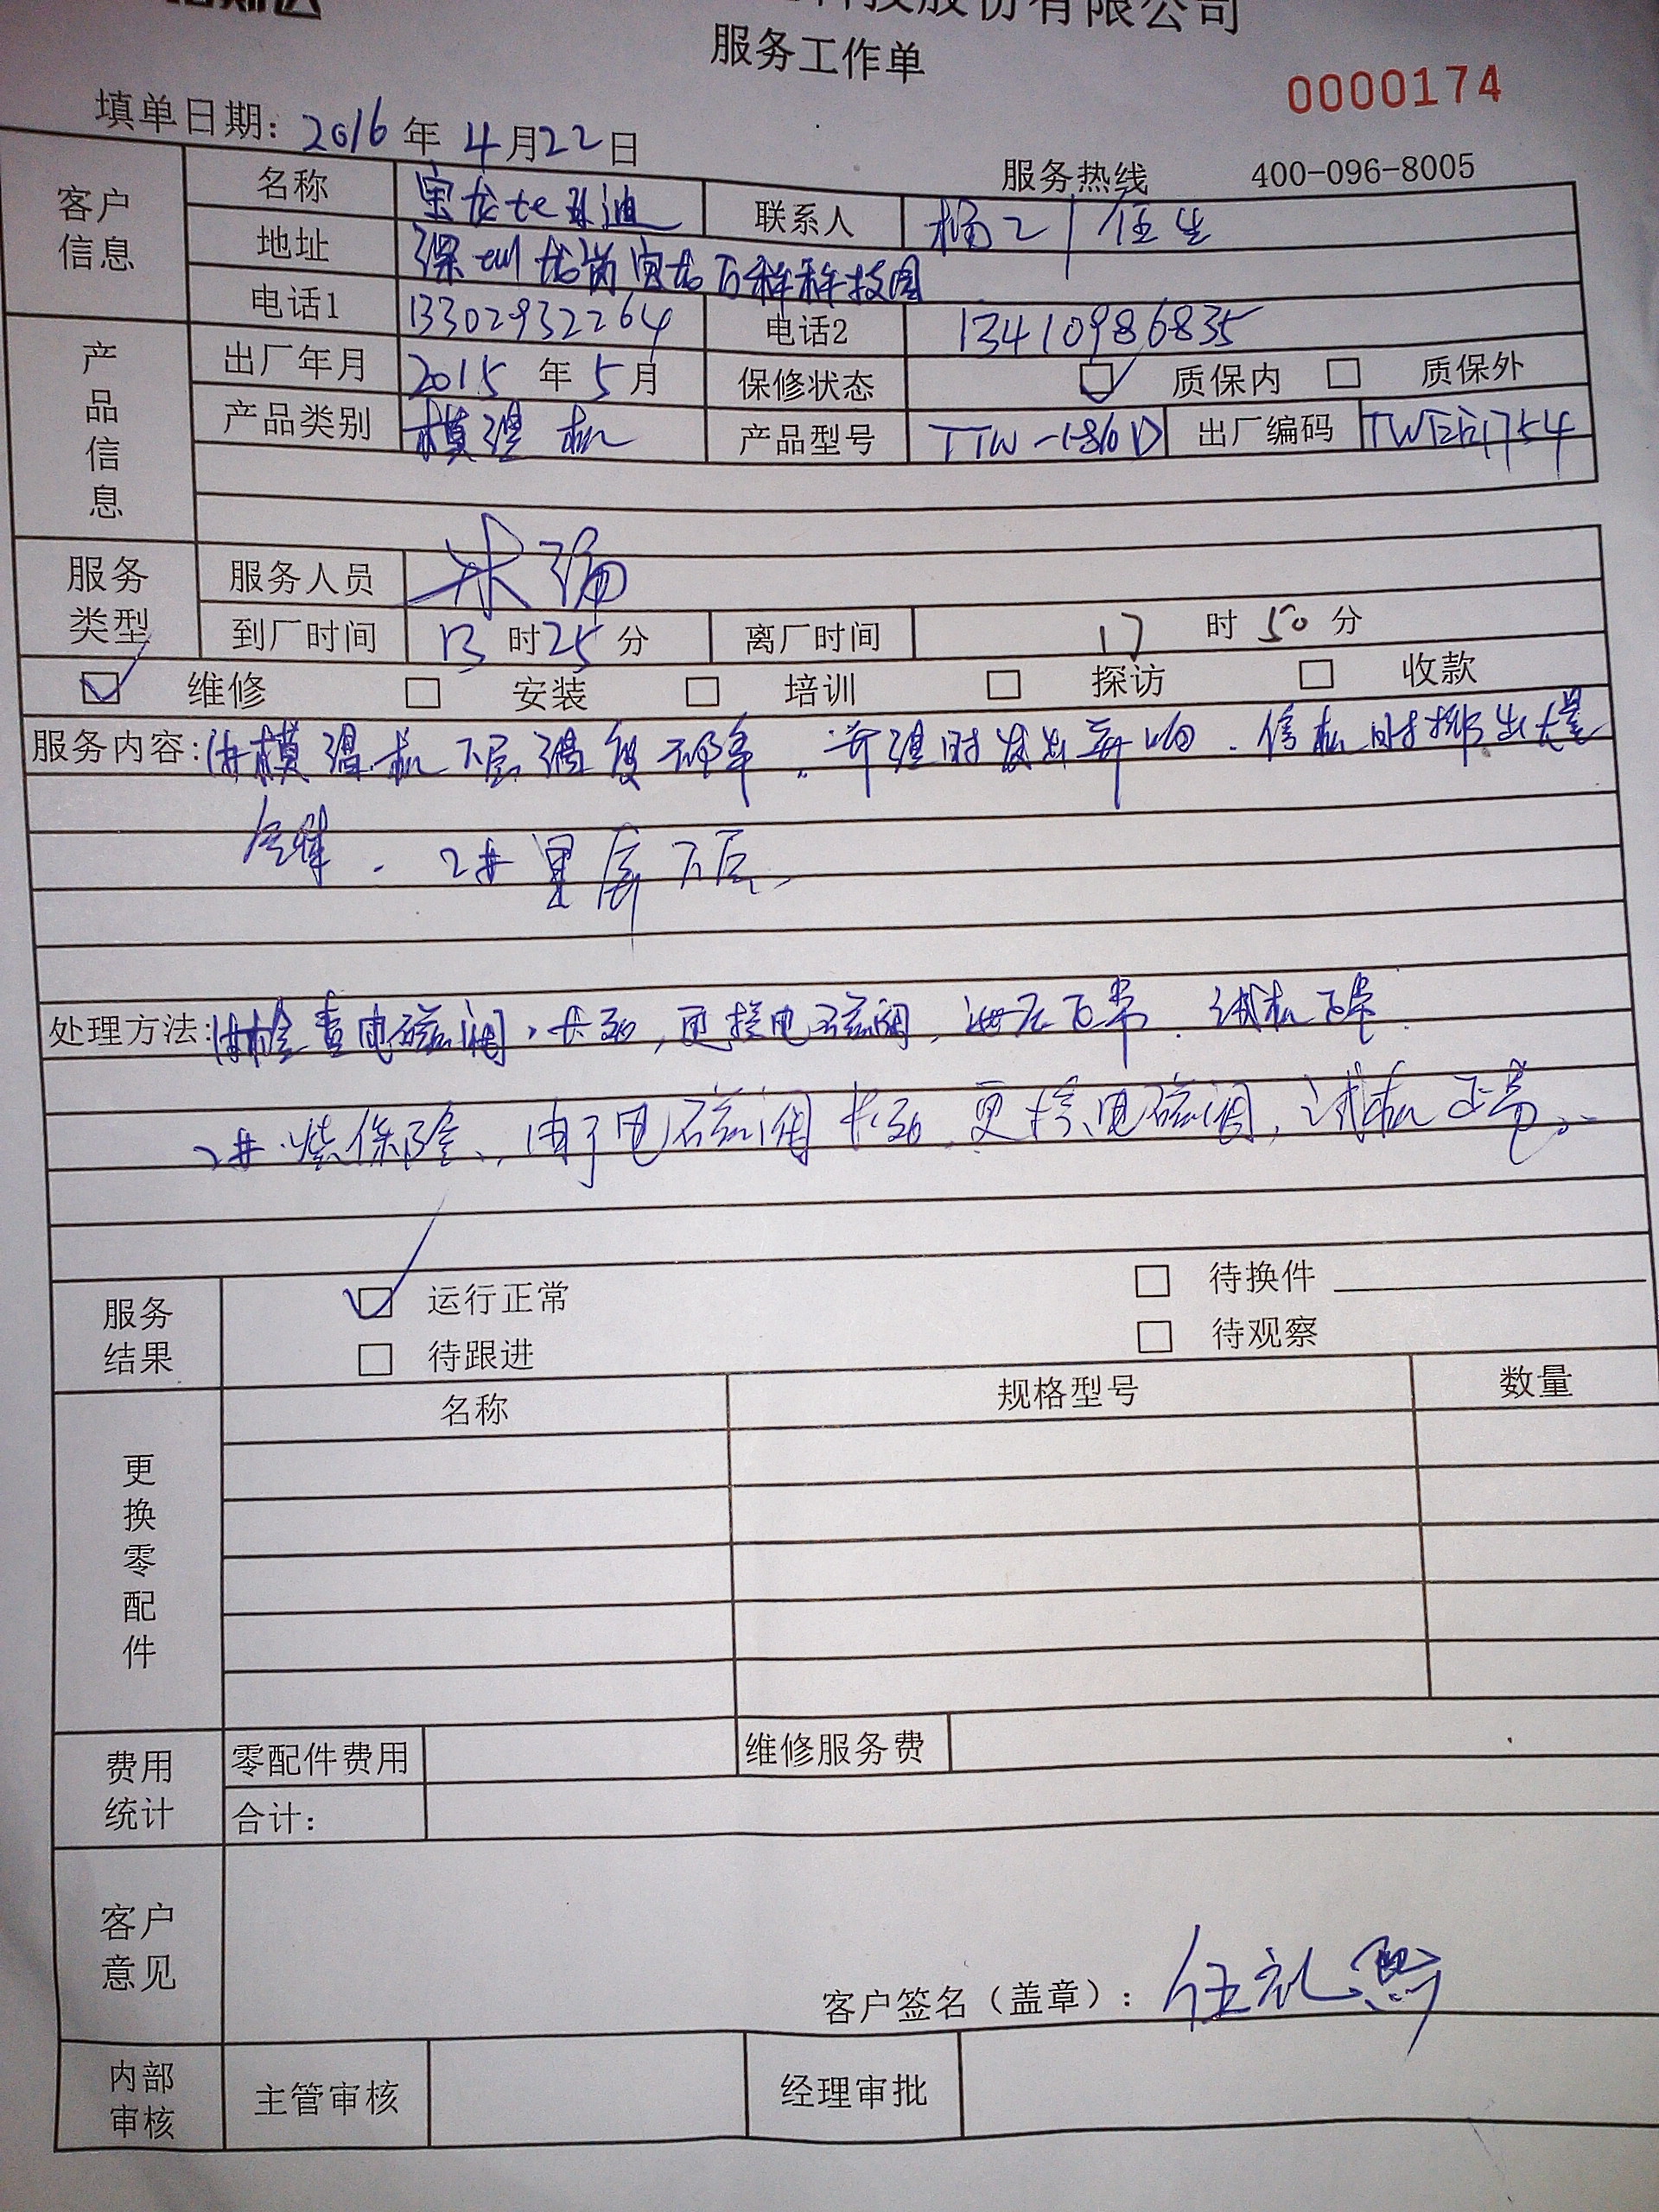 科技股份有限公司
服务工作单
0000174
填单日期: 2016年4月22日
服务热线 400-096-8005
客户信息
名称 宝龙 迪 联系人 杨工/任生
地址 深圳龙岗宝龙 科技园
电话1 13302932264 电话2 13410986835
产品信息
出厂年月 2015年5月 保修状态 质保内 质保外
产品类别 模温机 产品型号 出厂编码
服务类型
服务人员
到厂时间 13时25分 离厂时间 17时50分
维修 安装 培训 探访 收款
服务内容: 1#模温机下层温度不 ,升温时发出异响.停机时排出大量
2#黑屏下层.
处理方法: 1#检查电磁阀,卡死,更换电磁阀, 正常.试机正常.
2#烧保险,由于电磁阀卡死,更换电磁阀,试机正常.
服务结果
运行正常 待换件
待跟进 待观察
更换零配件
名称 规格型号 数量
费用统计
零配件费用 维修服务费
合计:
客户意见
客户签名(盖章): 任礼
内部审核
主管审核 经理审批